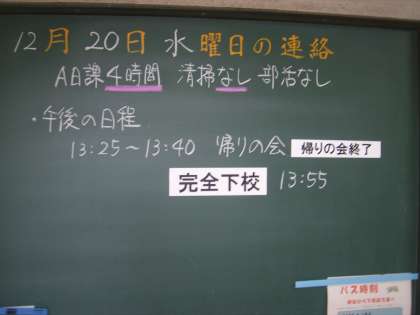 12月20日水曜日の連絡
A日課4時間 清掃なし 部活なし
・午後の日程
13:25〜13:40 帰りの会 帰りの会終了
完全下校 13:55
バス時刻